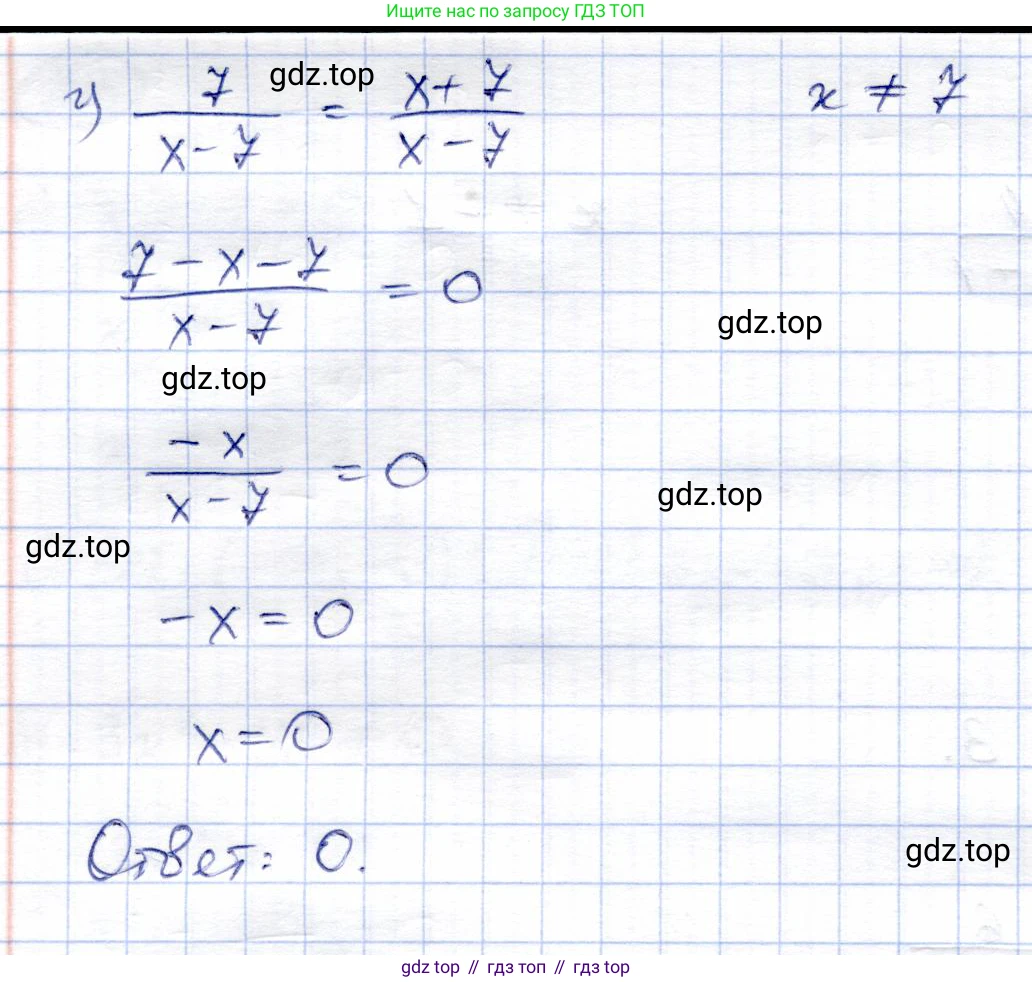 Ищите нас по запросу ГДЗ ТОП
г) 7/(x-7) = (x+7)/(x-7)    x ≠ 7
gdz.top
(7-x-7)/(x-7) = 0
gdz.top
gdz.top
-x/(x-7) = 0
gdz.top
gdz.top
-x = 0
x = 0
Ответ: 0.
gdz.top
gdz top // гдз топ // гдз top